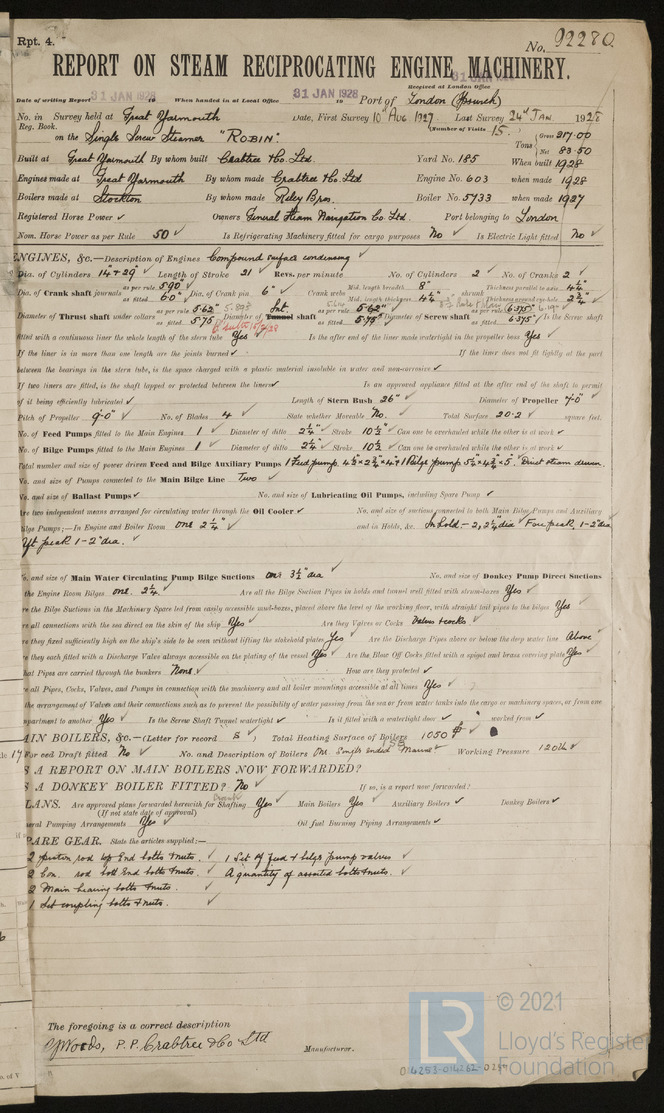 Rpt. 4.
No. 92280
REPORT ON STEAM RECIPROCATING ENGINE MACHINERY.
Received at London Office 31 JAN
Date of writing Report 31 JAN 1928 19 When handed in at Local Office 31 JAN 1928 19 Port of London (Ipswich)
No. in Survey held at Great Yarmouth Date, First Survey 10th Aug 1927 Last Survey 24th Jan 1928
Reg. Book. (Number of Visits 15.)
on the Single Screw Steamer "ROBIN". Tons Gross 217.00 Net 83.50
Built at Great Yarmouth By whom built Crabtree & Co. Ltd. Yard No. 185 When built 1928
Engines made at Great Yarmouth By whom made Crabtree & Co. Ltd Engine No. 603 when made 1928
Boilers made at Stockton By whom made Riley Bros. Boiler No. 5733 when made 1927
Registered Horse Power ✓ Owners General Steam Navigation Co. Ltd. Port belonging to London
Nom. Horse Power as per Rule 50 ✓ Is Refrigerating Machinery fitted for cargo purposes No ✓ Is Electric Light fitted No ✓
ENGINES, &c.—Description of Engines Compound surface condensing ✓
Dia. of Cylinders 14" + 29" ✓ Length of Stroke 21 ✓ Revs. per minute No. of Cylinders 2 ✓ No. of Cranks 2 ✓
Dia. of Crank shaft journals as per rule 5.90 as fitted 6.0" Dia. of Crank pin 6" ✓ Crank webs Mid. length breadth 8" Mid. length thickness 4¼" shrunk Thickness parallel to axis 4¼" Thickness around eye hole 2¾"
Diameter of Thrust shaft under collars as per rule 5.62" as fitted 5.75 Diameter of Tunnel Int. shaft as per rule 5.62" as fitted 5.75" Diameter of Screw shaft as per rule 6.375" as fitted 6.375" Is the Screw shaft
fitted with a continuous liner the whole length of the stern tube Yes ✓ Is the after end of the liner made watertight in the propeller boss Yes ✓
If the liner is in more than one length are the joints burned ✓ If the liner does not fit tightly at the part
between the bearings in the stern tube, is the space charged with a plastic material insoluble in water and non-corrosive ✓
If two liners are fitted, is the shaft lapped or protected between the liners ✓ Is an approved appliance fitted at the after end of the shaft to permit
of it being efficiently lubricated ✓ Length of Stern Bush 26" ✓ Diameter of Propeller 7'-0" ✓
Pitch of Propeller 9'-0" ✓ No. of Blades 4 ✓ State whether Moveable No. ✓ Total Surface 20.2 ✓ square feet.
No. of Feed Pumps fitted to the Main Engines 1 ✓ Diameter of ditto 2¼" ✓ Stroke 10½ ✓ Can one be overhauled while the other is at work ✓
No. of Bilge Pumps fitted to the Main Engines 1 ✓ Diameter of ditto 2¼" ✓ Stroke 10½ ✓ Can one be overhauled while the other is at work ✓
Total number and size of power driven Feed and Bilge Auxiliary Pumps 1 Feed pump 4½" × 2¾" × 4" + 1 Bilge pump 5½" × 4¾" × 5". Direct steam driven.
No. and size of Pumps connected to the Main Bilge Line Two ✓
No. and size of Ballast Pumps ✓ No. and size of Lubricating Oil Pumps, including Spare Pump ✓
Are two independent means arranged for circulating water through the Oil Cooler ✓ No. and size of suctions connected to both Main Bilge Pumps and Auxiliary
Bilge Pumps;—In Engine and Boiler Room one 2¼" ✓ and in Holds, &c. In hold – 2, 2¼" dia ✓ Fore peak 1 – 2" dia
Aft peak 1 – 2" dia. ✓
No. and size of Main Water Circulating Pump Bilge Suctions one 3½" dia ✓ No. and size of Donkey Pump Direct Suctions
the Engine Room Bilges one. 2¼ ✓ Are all the Bilge Suction Pipes in holds and tunnel well fitted with strum-boxes Yes ✓
re the Bilge Suctions in the Machinery Space led from easily accessible mud-boxes, placed above the level of the working floor, with straight tail pipes to the bilges Yes ✓
re all connections with the sea direct on the skin of the ship Yes ✓ Are they Valves or Cocks Valves & cocks ✓
re they fixed sufficiently high on the ship's side to be seen without lifting the stokehold plates Yes ✓ Are the Discharge Pipes above or below the deep water line Above ✓
re they each fitted with a Discharge Valve always accessible on the plating of the vessel Yes ✓ Are the Blow Off Cocks fitted with a spigot and brass covering plate Yes ✓
hat Pipes are carried through the bunkers None ✓ How are they protected ✓
re all Pipes, Cocks, Valves, and Pumps in connection with the machinery and all boiler mountings accessible at all times Yes ✓
the arrangement of Valves and their connections such as to prevent the possibility of water passing from the sea or from water tanks into the cargo or machinery spaces, or from one
mpartment to another Yes ✓ Is the Screw Shaft Tunnel watertight ✓ Is it fitted with a watertight door ✓ worked from ✓
AIN BOILERS, &c.—(Letter for record S ✓) Total Heating Surface of Boilers 1050 ✓
Forced Draft fitted No ✓ No. and Description of Boilers One Single Ended Marine ✓ Working Pressure 120 lb ✓
S A REPORT ON MAIN BOILERS NOW FORWARDED?
S A DONKEY BOILER FITTED? No ✓ If so, is a report now forwarded?
LANS. Are approved plans forwarded herewith for Shafting Yes ✓ Main Boilers Yes ✓ Auxiliary Boilers ✓ Donkey Boilers ✓
(If not state date of approval)
eral Pumping Arrangements Yes ✓ Oil fuel Burning Piping Arrangements ✓
PARE GEAR. State the articles supplied:—
2 piston rod top End bolts & nuts. ✓ 1 Set of feed & bilge pump valves ✓
2 Con. rod bott End bolts & nuts. ✓ A quantity of assorted bolts & nuts. ✓
2 Main bearing bolts & nuts. ✓
1 Set coupling bolts & nuts. ✓
The foregoing is a correct description
Woods, P.P. Crabtree & Co Ltd Manufacturer.
LR © 2021
Lloyd's Register
Foundation